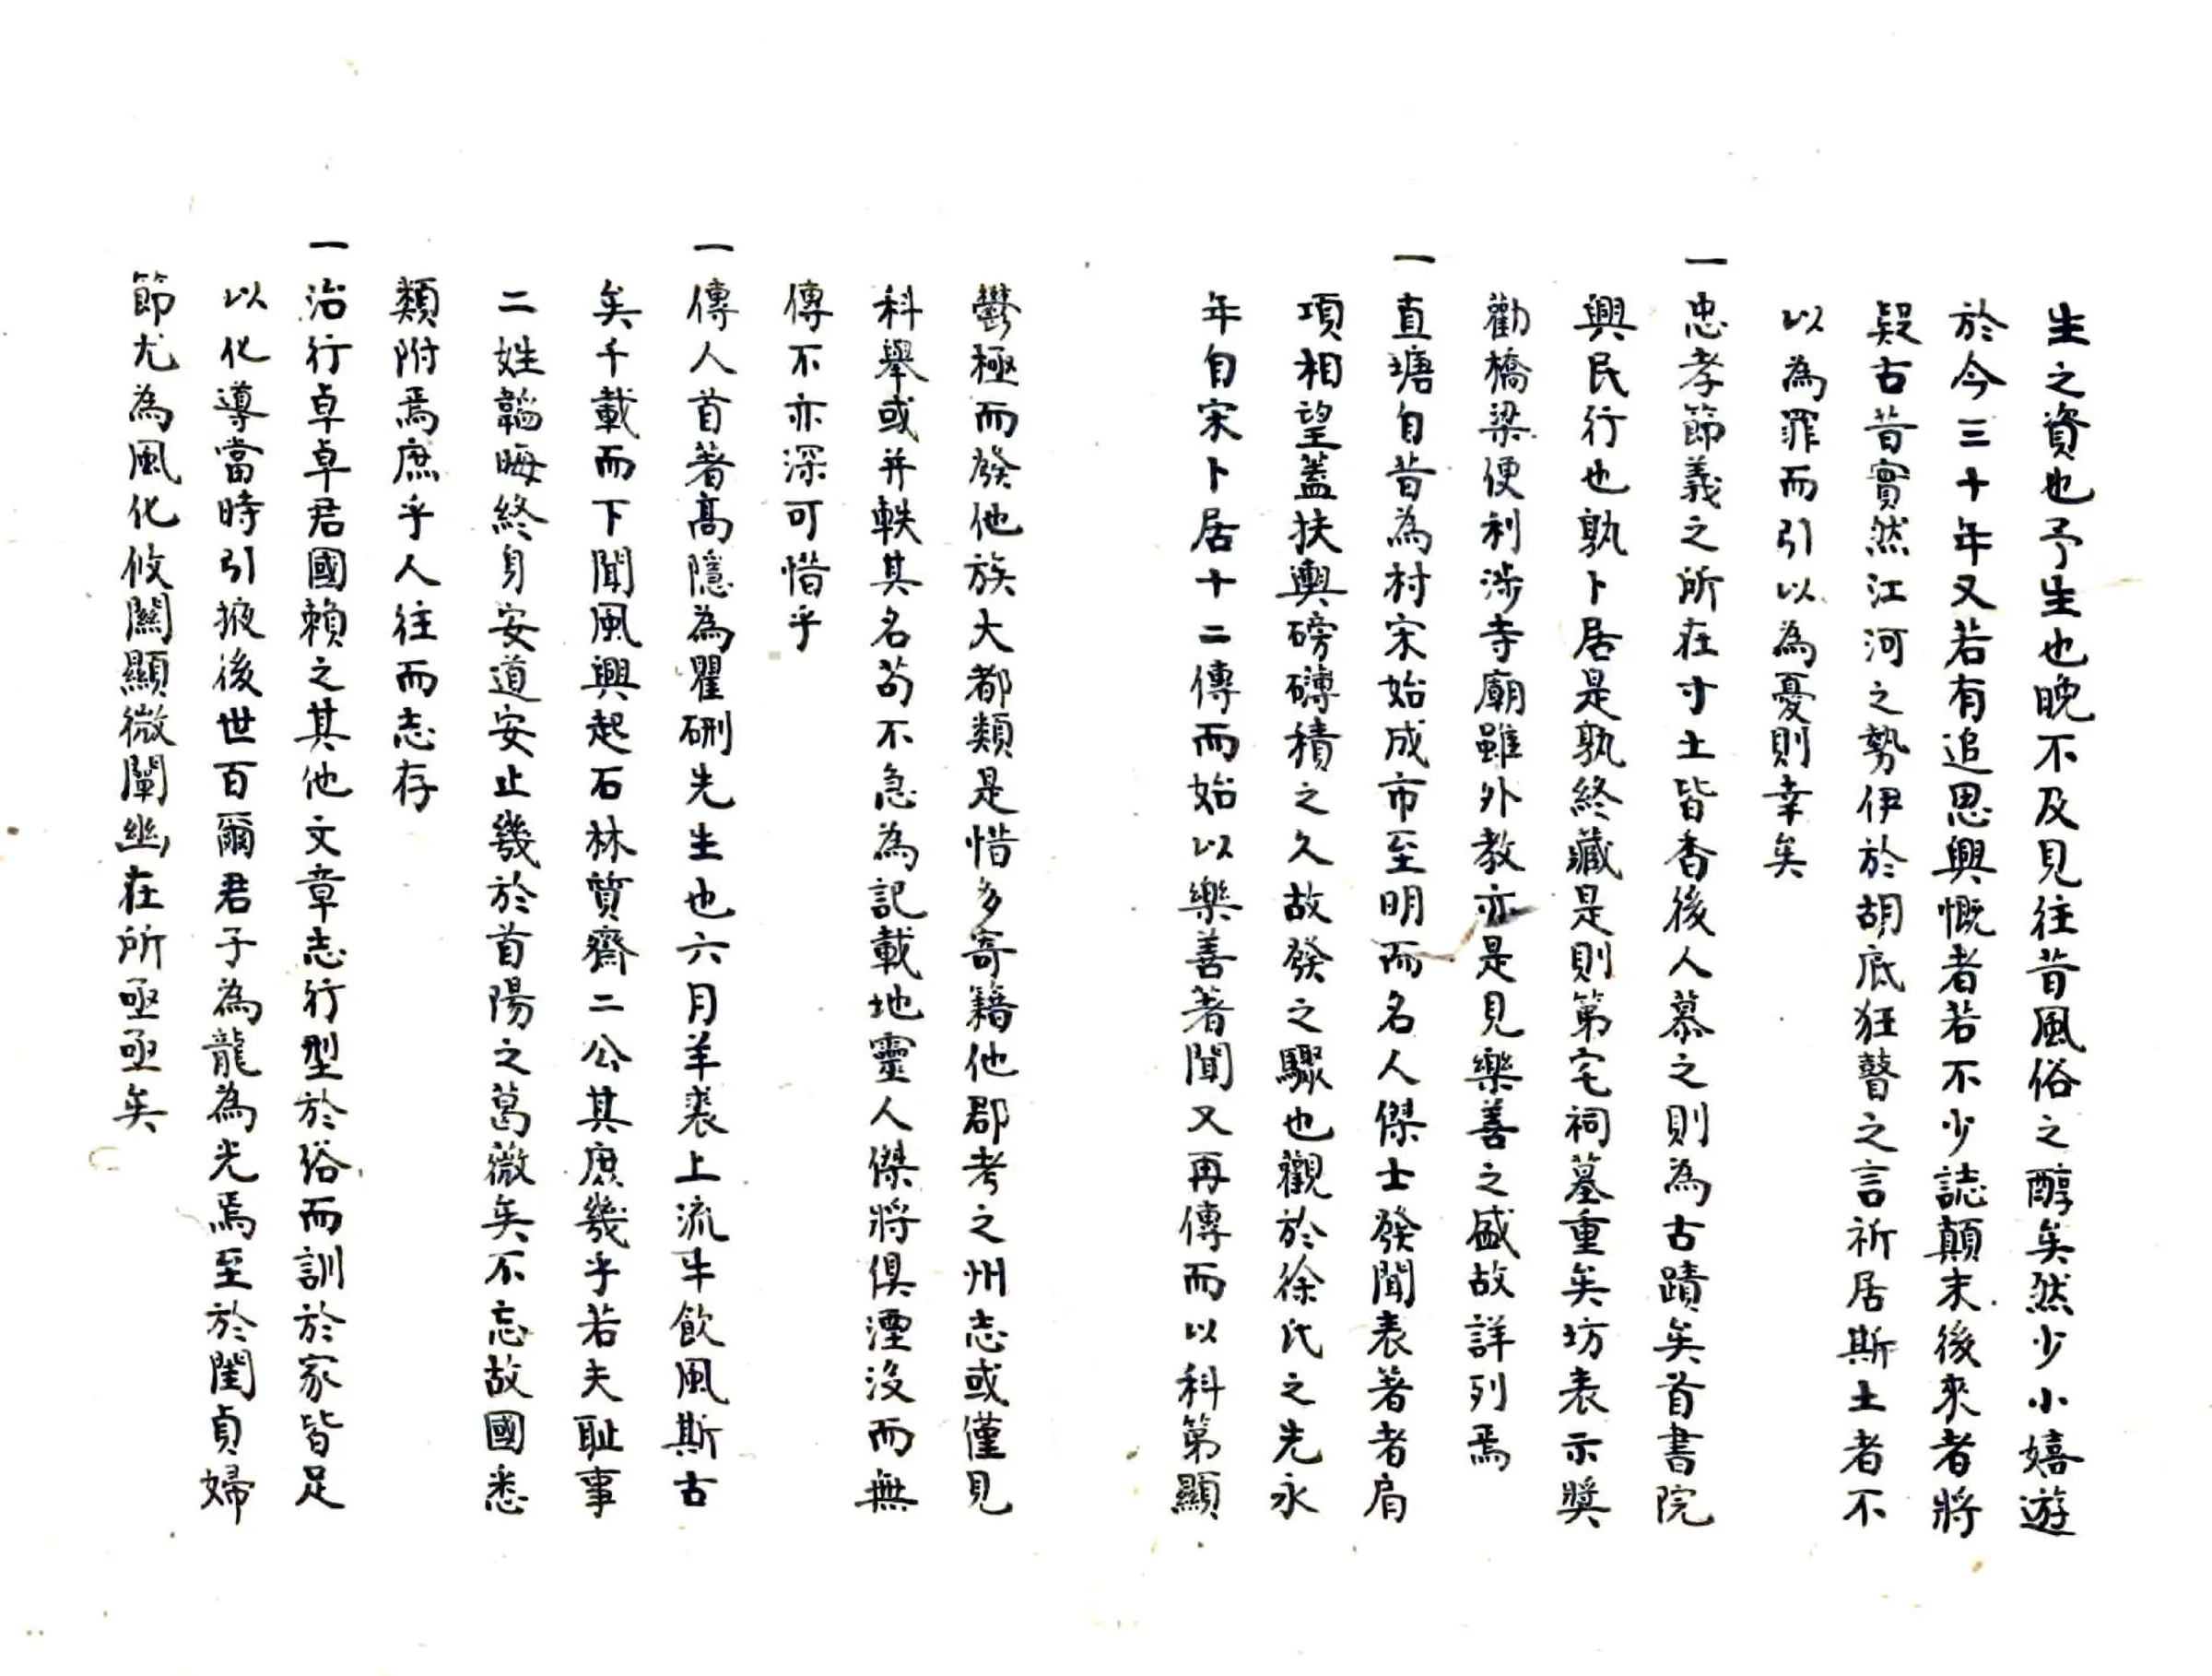 生之資也予生也晚不及見往昔風俗之醇矣然少小嬉遊
於今三十年又若有追思興慨者若不少誌顛末後來者將
疑古昔實然江河之勢伊於胡底狂瞽之言祈居斯土者不
以為罪而引以為憂則幸矣
一忠孝節義之所在寸土皆香後人慕之則為古蹟矣首書院
興民行也孰卜居是孰終藏是則第宅祠墓重矣坊表示獎
勸橋梁便利涉寺廟雖外教亦是見樂善之盛故詳列焉
一直瑭自昔為村宋始成市至明而名人傑士發聞表著者肩
項相望蓋扶輿磅礴積之久故發之驟也觀於徐氏之先永
年自宋卜居十二傳而始以樂善著聞又再傳而以科第顯
鬱極而發他族大都類是惜多寄籍他郡考之州志或僅見
科舉或并軼其名苟不急為記載地靈人傑將俱湮沒而無
傳不亦深可惜乎
一傳人首著高隱為瞿硎先生也六月羊裘上流牛飲風斯古
矣千載而下聞風興起石林質齋二公其庶幾乎若夫恥事
二姓韜晦終身安道安止幾於首陽之葛薇矣不忘故國悉
類附焉庶乎人往而志存
一治行卓卓君國賴之其他文章志行型於俗而訓於家皆足
以化導當時引掖後世百爾君子為龍為光焉至於閨貞婦
節尤為風化攸關顯微闡幽在所亟亟矣